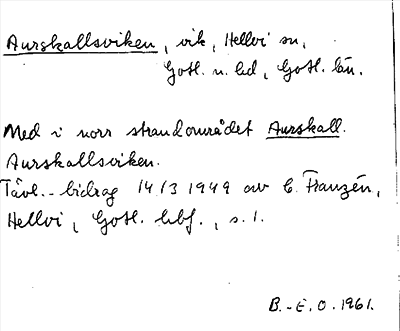 Aurskallsviken, vik, Hellvi sn,
Gotl. n. hd, Gotl. län.
Med i norr strandområdet Aurskall.
Aurskallsviken.
Tävl.-bidrag 14/3 1949 av C. Franzén,
Hellvi, Gotl. hbf., s. 1.
B.-E. O. 1961.